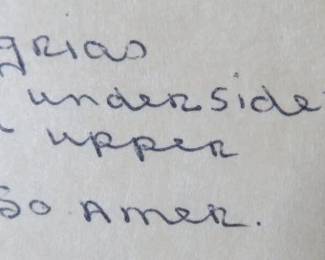 grias
underside
upper
So Amer.